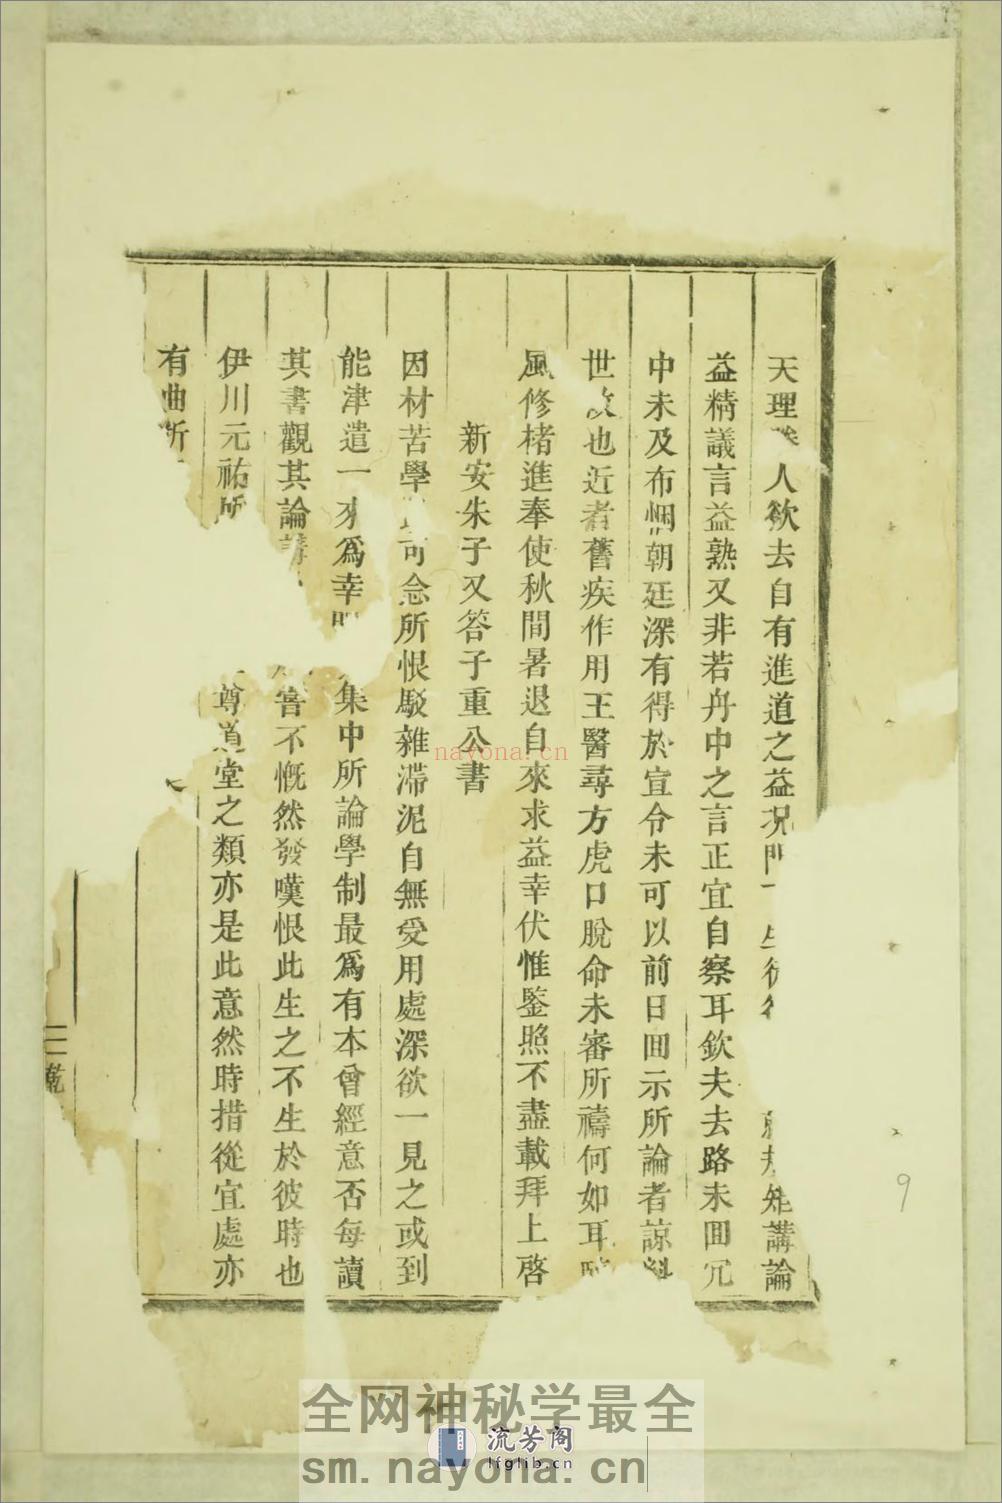 天理 人欲去自有進道之益况 規矩講論
益精議言益熟又非若丹中之言正宜自察耳欽夫去路未囬冗
中未及布悃朝廷深有得於宜令未可以前日囬示所論者諒
世故也近者舊疾作用王醫尋方虎口脫命未審所禱何如耳
風修楮進奉使秋間暑退自來求益幸伏惟鑒照不盡載拜上啓
新安朱子又答子重公書
因材苦學 可念所恨駁雜滯泥自無受用處深欲一見之或到
能津遣一來爲幸 集中所論學制最爲有本曾經意否每讀
其書觀其論講 嘗不慨然發嘆恨此生之不生於彼時也
伊川元祐所 尊道堂之類亦是此意然時措從宜處亦
有曲折
乾
9
nayona.cn
全网神秘学最全
流芳阁
lfglib.cn
sm.nayona.cn